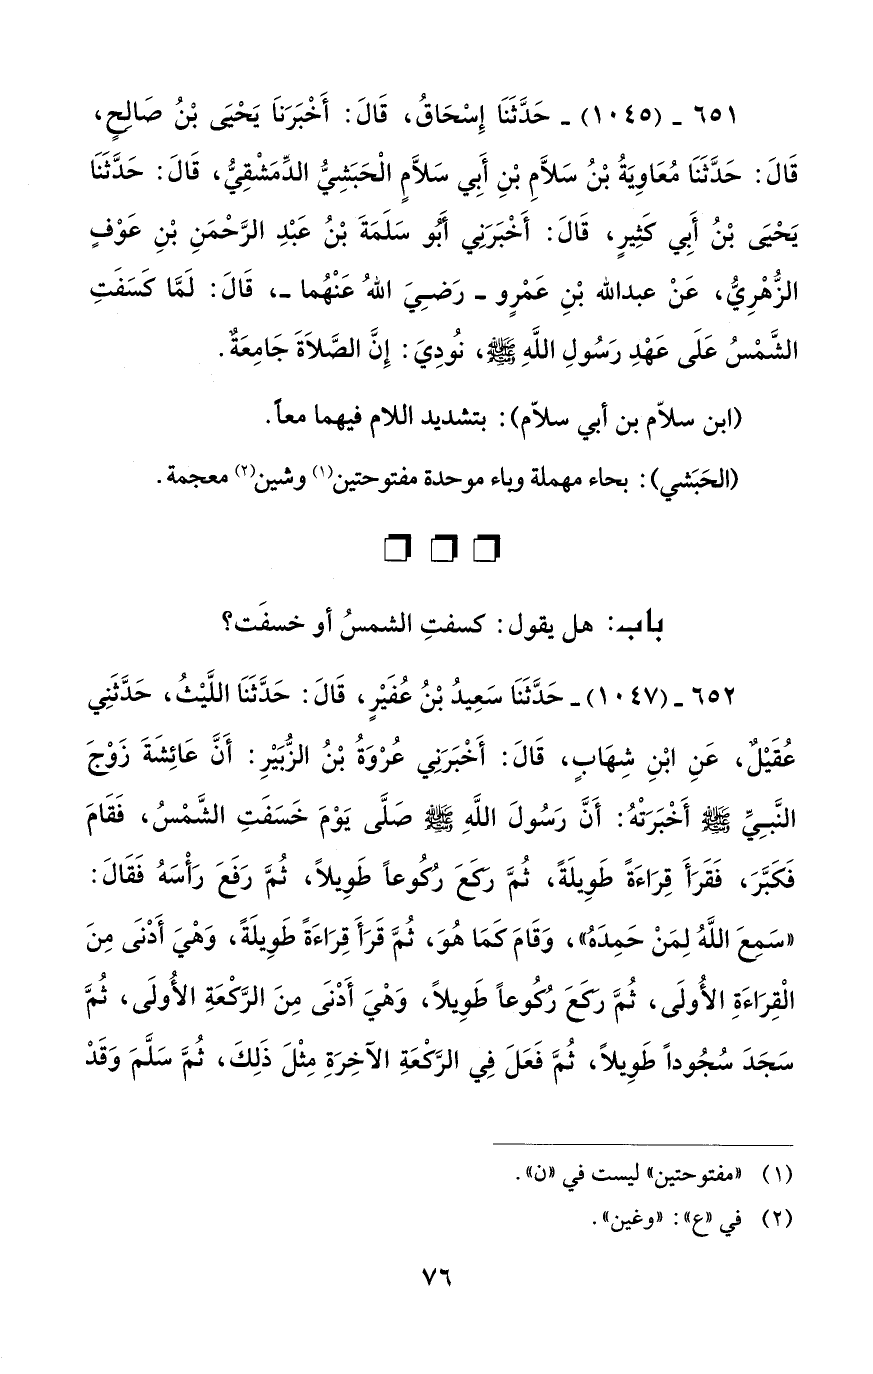 ٦٥١ ـ (١٠٤٥) ـ حَدَّثَنَا إِسْحَاقُ، قَالَ: أَخْبَرَنَا يَحْيَى بْنُ صَالِحٍ،
قَالَ: حَدَّثَنَا مُعَاوِيَةُ بْنُ سَلاَّمِ بْنِ أَبِي سَلاَّمٍ الْحَبَشِيُّ الدِّمَشْقِيُّ، قَالَ: حَدَّثَنَا
يَحْيَى بْنُ أَبِي كَثِيرٍ، قَالَ: أَخْبَرَنِي أَبُو سَلَمَةَ بْنُ عَبْدِ الرَّحْمَنِ بْنِ عَوْفٍ
الزُّهْرِيُّ، عَنْ عبدالله بْنِ عَمْرٍو ـ رَضِيَ اللهُ عَنْهُما ـ، قَالَ: لَمَّا كَسَفَتِ
الشَّمْسُ عَلَى عَهْدِ رَسُولِ اللَّهِ ﷺ، نُودِيَ: إِنَّ الصَّلاَةَ جَامِعَةٌ.
(ابن سلاّم بن أبي سلاّم): بتشديد اللام فيهما معاً.
(الحَبَشي): بحاء مهملة وباء موحدة مفتوحتين(١) وشين(٢) معجمة.
باب: هل يقول: كسفتِ الشمسُ أو خسفَت؟
٦٥٢ ـ (١٠٤٧) ـ حَدَّثَنَا سَعِيدُ بْنُ عُفَيْرٍ، قَالَ: حَدَّثَنَا اللَّيْثُ، حَدَّثَنِي
عُقَيْلٌ، عَنِ ابْنِ شِهَابٍ، قَالَ: أَخْبَرَنِي عُرْوَةُ بْنُ الزُّبَيْرِ: أَنَّ عَائِشَةَ زَوْجَ
النَّبِيِّ ﷺ أَخْبَرَتْهُ: أَنَّ رَسُولَ اللَّهِ ﷺ صَلَّى يَوْمَ خَسَفَتِ الشَّمْسُ، فَقَامَ
فَكَبَّرَ، فَقَرَأَ قِرَاءَةً طَوِيلَةً، ثُمَّ رَكَعَ رُكُوعاً طَوِيلاً، ثُمَّ رَفَعَ رَأْسَهُ فَقَالَ:
«سَمِعَ اللَّهُ لِمَنْ حَمِدَهُ»، وَقَامَ كَمَا هُوَ، ثُمَّ قَرَأَ قِرَاءَةً طَوِيلَةً، وَهْيَ أَدْنَى مِنَ
الْقِرَاءَةِ الأُولَى، ثُمَّ رَكَعَ رُكُوعاً طَوِيلاً، وَهْيَ أَدْنَى مِنَ الرَّكْعَةِ الأُولَى، ثُمَّ
سَجَدَ سُجُوداً طَوِيلاً، ثُمَّ فَعَلَ فِي الرَّكْعَةِ الآخِرَةِ مِثْلَ ذَلِكَ، ثُمَّ سَلَّمَ وَقَدْ
(١) «مفتوحتين» ليست في «ن».
(٢) في «ع»: «وغين».
٧٦